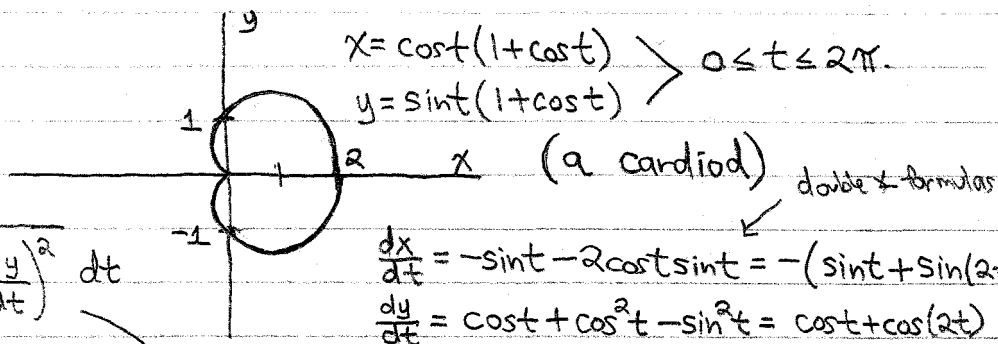 y
x = cost(1+cost)
y = sint(1+cost)
0 ≤ t ≤ 2π.
1
2
x
(a cardiod)
double ∡ formulas
-1
dx/dt = -sint - 2costsint = -(sint + sin(2
y/dt)² dt
dy/dt = cost + cos²t - sin²t = cost + cos(2t)